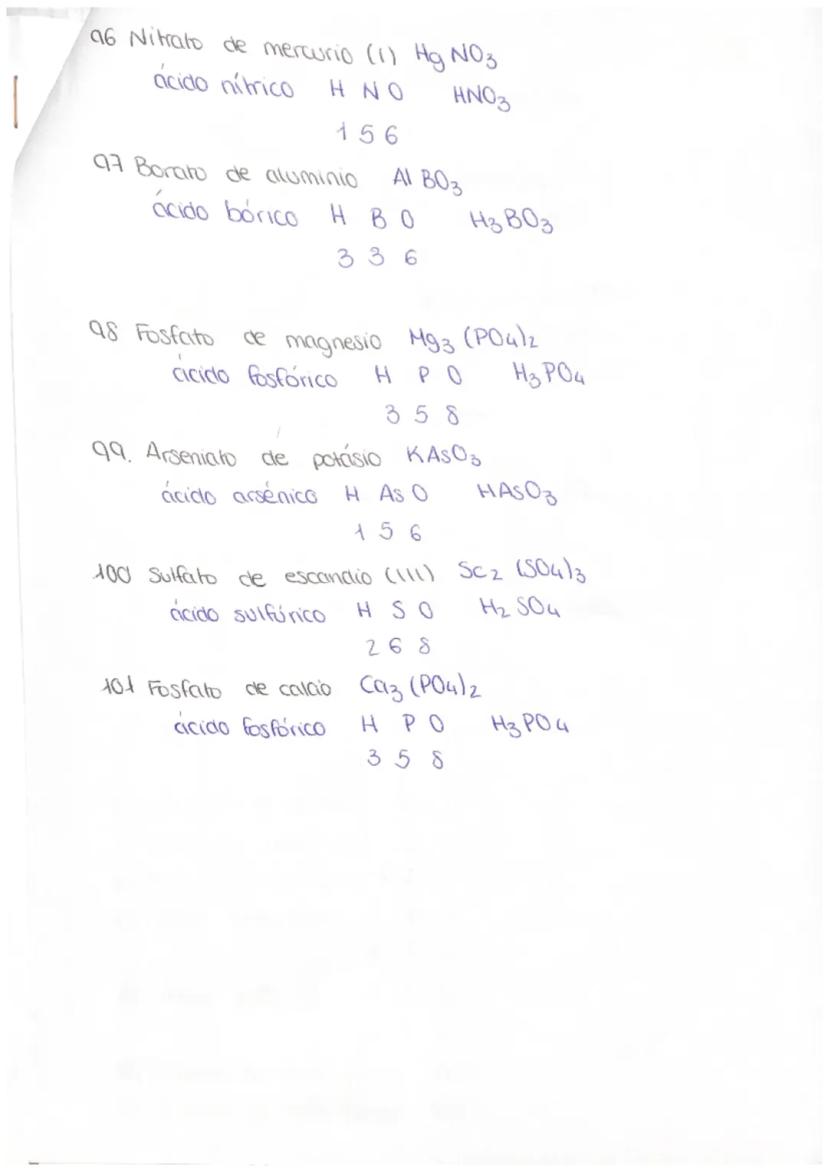 96 Nitrato de mercurio (I) HgNO3
ácido nítrico H N O HNO3
1 5 6
97 Borato de aluminio AlBO3
ácido bórico H B O H3BO3
3 3 6
98 Fosfato de magnesio Mg3(PO4)2
ácido fosfórico H P O H3PO4
3 5 8
99. Arseniato de potásio KAsO3
ácido arsénico H As O HAsO3
1 5 6
100 Sulfato de escandio (III) Sc2(SO4)3
ácido sulfúrico H S O H2SO4
2 6 8
101 Fosfato de calcio Ca3(PO4)2
ácido fosfórico H P O H3PO4
3 5 8